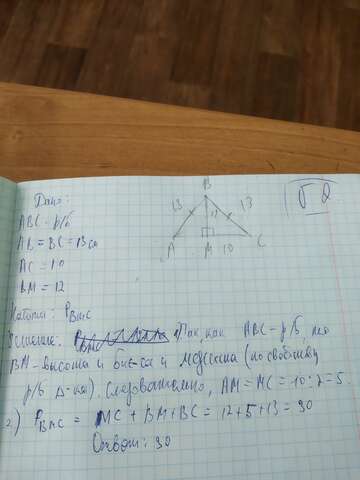 Дано:
ABC - р/б
AB = BC = 13 см
AC = 10
BM = 12
Найти: P_BMC
B
13
12
13
A
M
10
C
Решение. 1) Так как ABC - р/б, то
BM - высота и бис-са и медиана (по свойству
р/б Δ-ка). Следовательно, AM = MC = 10:2=5.
2) P_BMC = MC + BM + BC = 12+5+13 = 30
Ответ: 30